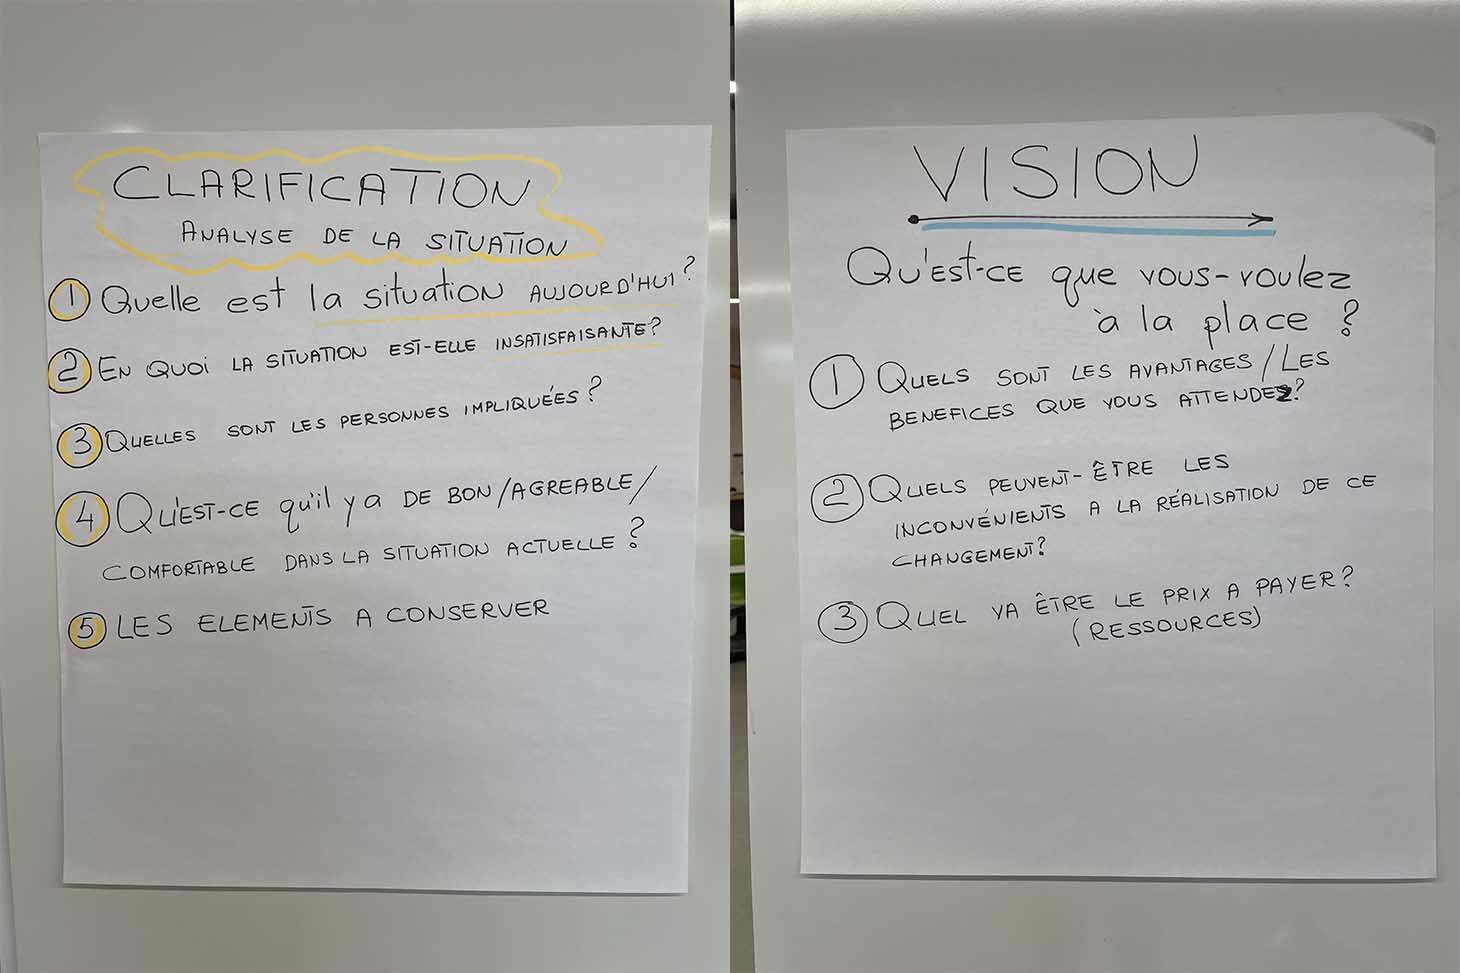 CLARIFICATION
ANALYSE DE LA SITUATION
1 Quelle est la situation AUJOURD'HUI?
2 EN QUOI LA SITUATION EST-ELLE INSATISFAISANTE?
3 QUELLES SONT LES PERSONNES IMPLIQUÉES?
4 QU'EST-CE qu'il y a DE BON/AGREABLE/
COMFORTABLE DANS LA SITUATION ACTUELLE?
5 LES ELEMENTS A CONSERVER
VISION
QU'EST-CE que vous-voulez
à la place ?
1 QUELS SONT LES AVANTAGES/LES
BENEFICES QUE VOUS ATTENDEZ?
2 QUELS PEUVENT-ÊTRE LES
INCONVÉNIENTS A LA RÉALISATION DE CE
CHANGEMENT?
3 QUEL VA ÊTRE LE PRIX A PAYER?
(RESSOURCES)